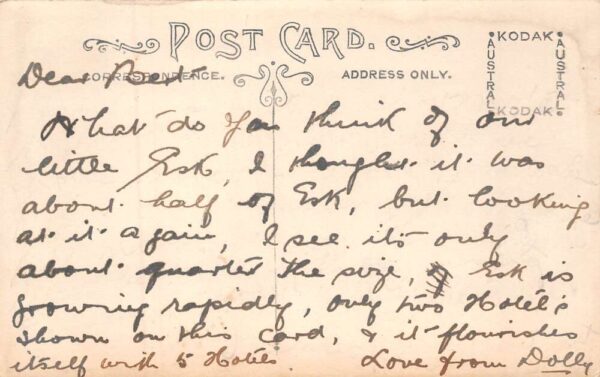 POST CARD.
CORRESPONDENCE.
ADDRESS ONLY.
KODAK
AUSTRAL
AUSTRAL
KODAK
Dear Bert
What do you think of our
little Esk, I thought it was
about half of Esk, but looking
at it again, I see it's only
about quarter the size, Esk is
growing rapidly, only two Hotel's
shown on this card, & it flourishes
itself with 5 Hotels.
Love from Dolly